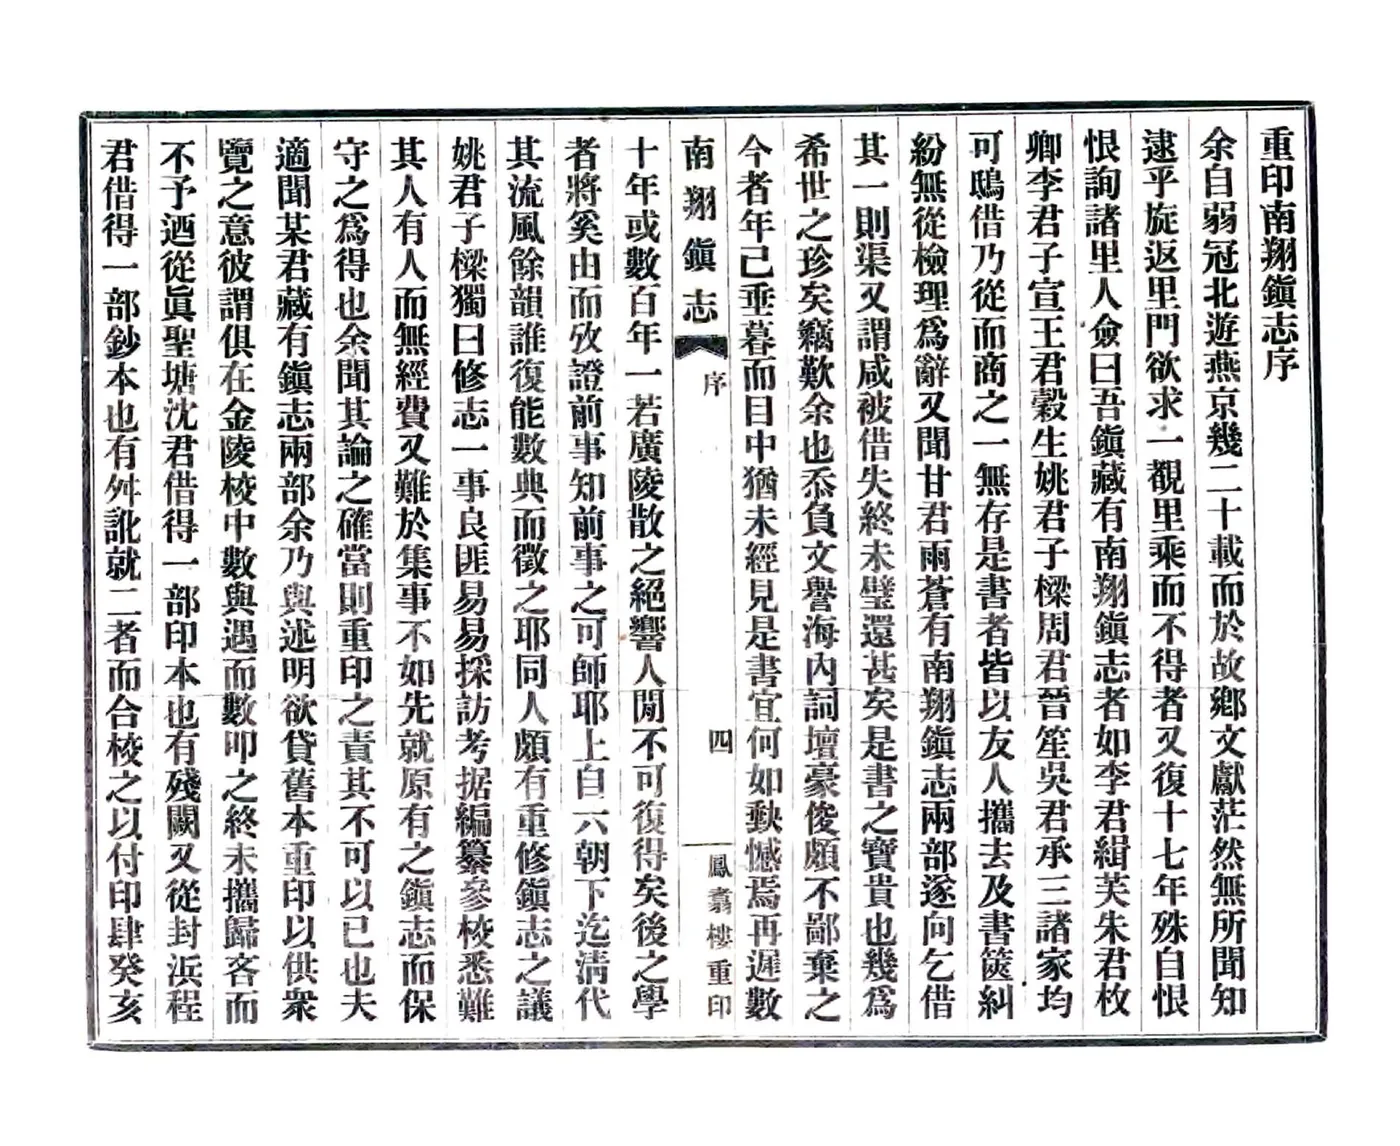 重印南翔鎭志序
余自弱冠北遊燕京幾二十載而於故鄉文獻茫然無所聞知
逮乎旋返里門欲求一覩里乘而不得者又復十七年殊自恨
恨詢諸里人僉曰吾鎭藏有南翔鎭志者如李君緝芙朱君枚
卿李君子宣王君穀生姚君子樑周君晉笙吳君承三諸家均
可鴟借乃從而商之一無存是書者皆以友人攜去及書篋糾
紛無從檢理爲辭又聞甘君雨蒼有南翔鎭志兩部遂向乞借
其一則渠又謂咸被借失終未璧還甚矣是書之寶貴也幾爲
希世之珍矣竊歎余也忝負文譽海內詞壇豪俊頗不鄙棄之
今者年已垂暮而目中猶未經見是書宜何如歉憾焉再遲數
南翔鎭志 序 四 鳳翥樓重印
十年或數百年一若廣陵散之絕響人間不可復得矣後之學
者將奚由而攷證前事知前事之可師耶上自六朝下迄清代
其流風餘韻誰復能數典而徵之耶同人頗有重修鎭志之議
姚君子樑獨曰修志一事良匪易易採訪考据編纂參校悉難
其人有人而無經費又難於集事不如先就原有之鎭志而保
守之爲得也余聞其論之確當則重印之責其不可以已也夫
適聞某君藏有鎭志兩部余乃與述明欲貸舊本重印以供衆
覽之意彼謂俱在金陵校中數與遇而數叩之終未攜歸客而
不予迺從眞聖塘沈君借得一部印本也有殘闕又從封浜程
君借得一部鈔本也有舛訛就二者而合校之以付印肆癸亥